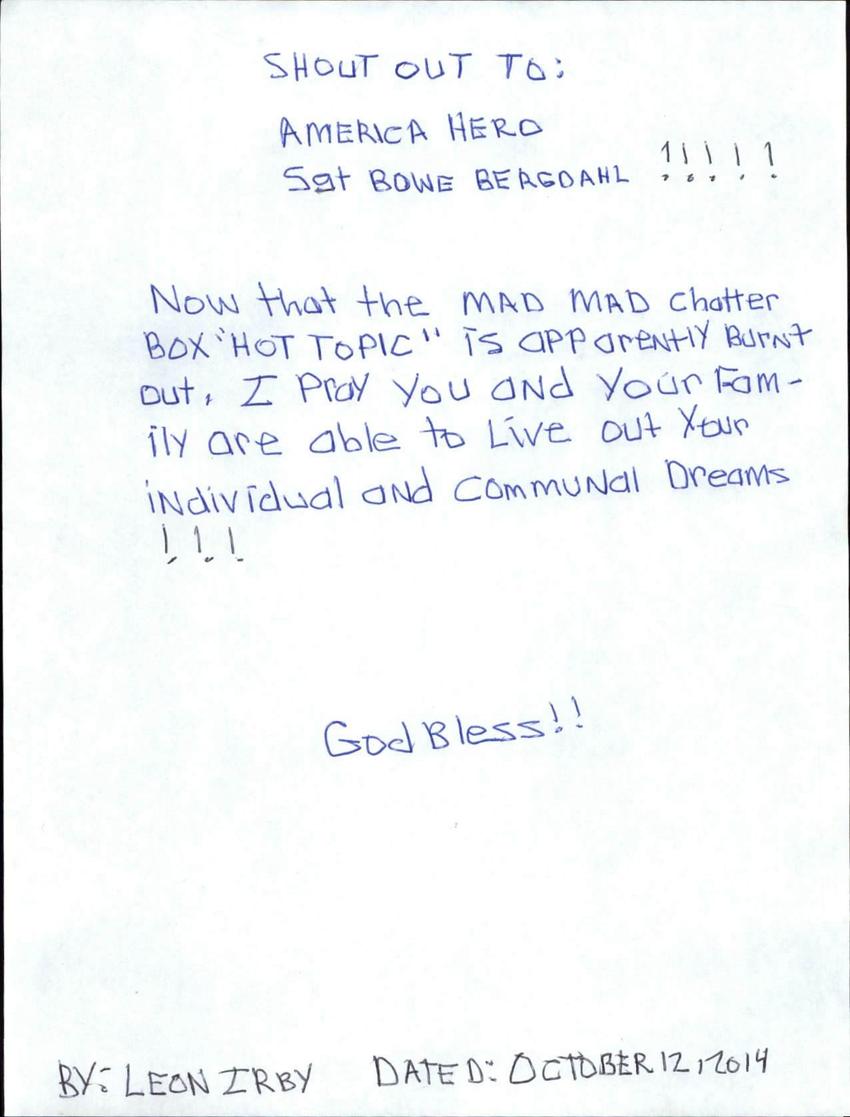 SHOUT OUT TO:
AMERICA HERO
Sgt BOWE BERGDAHL !!!!!
Now that the MAD MAD Chatter
BOX "HOT TOPIC" is apparently Burnt
out, I Pray you and your Fam-
ily are able to Live out Your
individual and communal Dreams
!!!
God Bless!!
BY: LEON IRBY DATED: OCTOBER 12, 2014